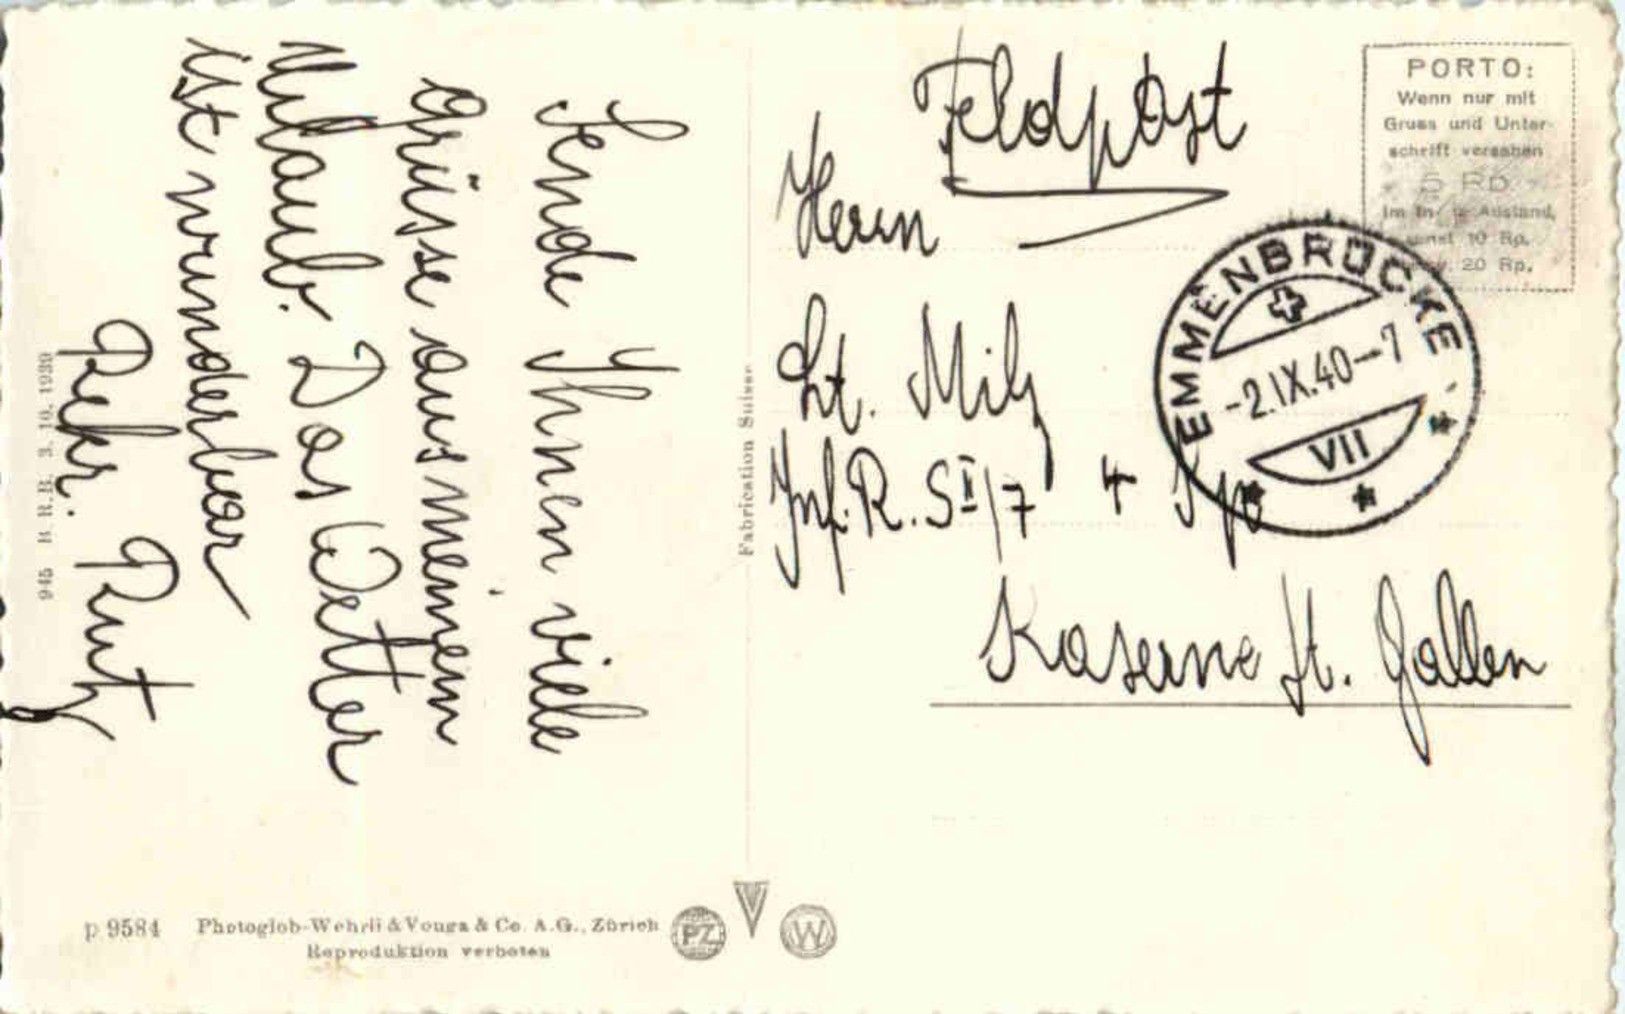 Sende Ihnen viele
Grüsse aus meinem
Urlaub. Das Wetter
ist wunderbar
Rekr. Rutz
945 B.R.B. 3.10.1939
p 9584 Photoglob-Wehrli & Vouga & Co. A.G., Zürich
Reproduktion verboten
PZ
W
Fabrication Suisse
Feldpost
Herrn
Lt. Milz
Inf. R. S II/7 4 Kp
Kaserne St. Gallen
PORTO:
Wenn nur mit
Gruss und Unter-
schrift versehen
5 Rp
im In- u. Ausland,
sonst 10 Rp.
20 Rp.
EMMENBRÜCKE
-2.IX.40-7
VII